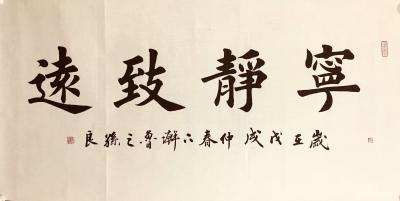 寧靜致遠
歲在戊戌仲春魯之孫良